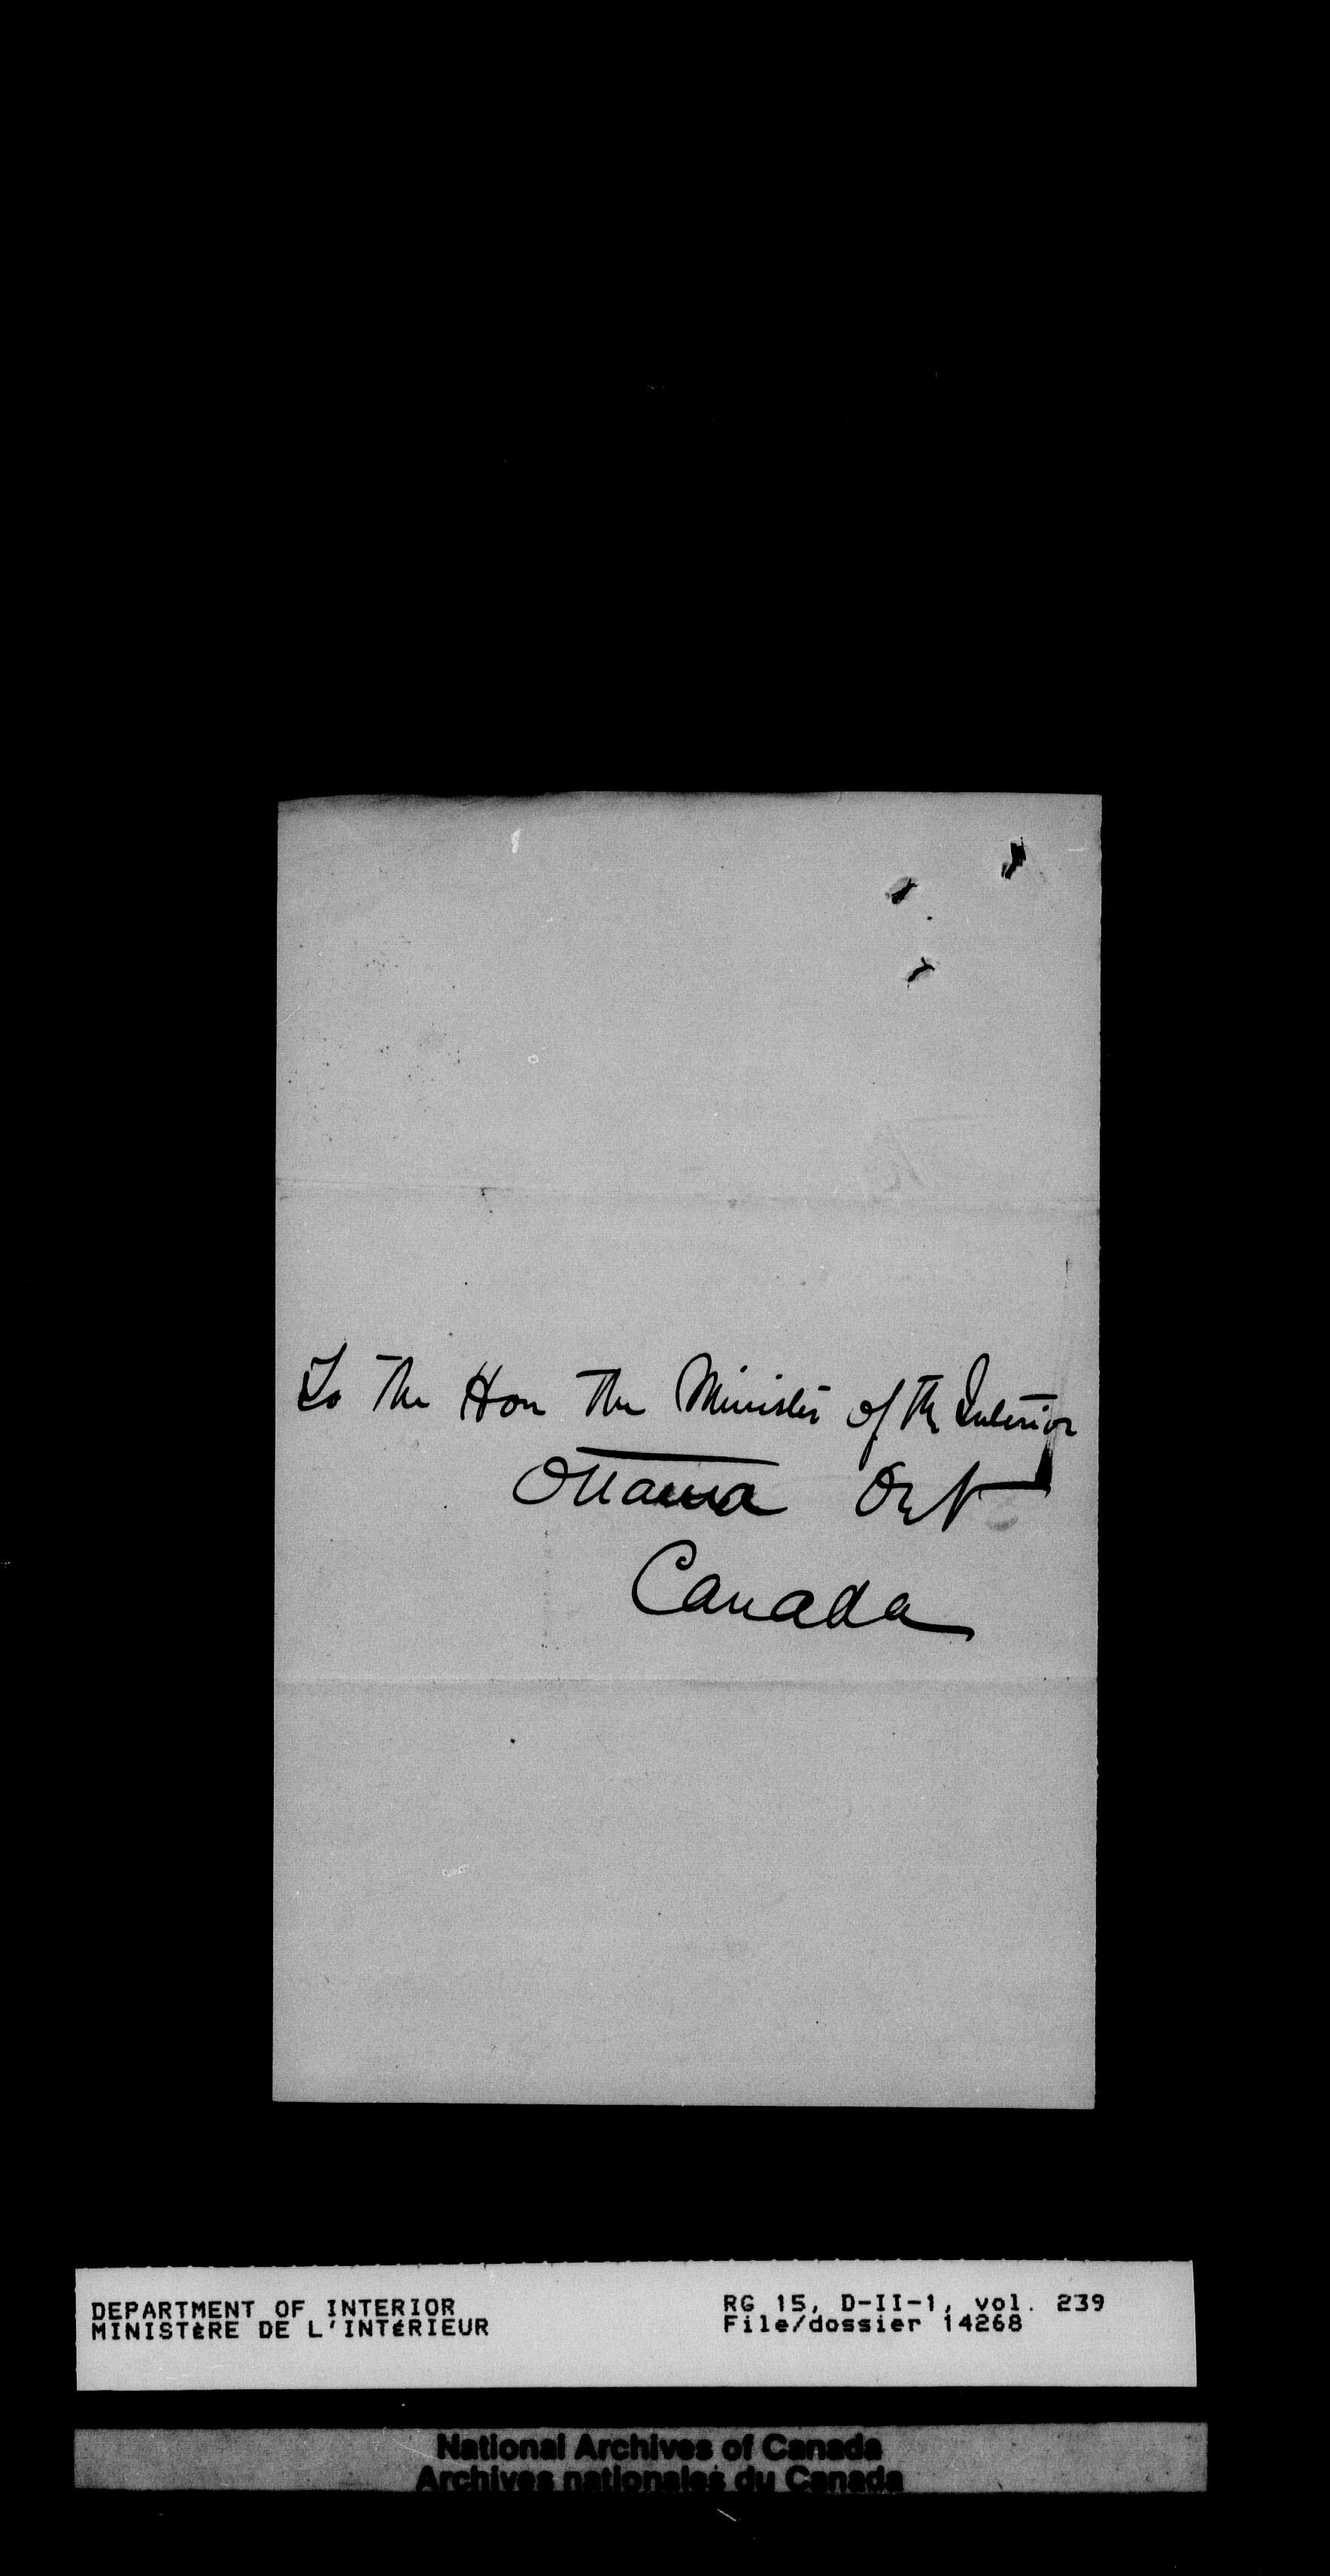 To The Hon The Minister of Th Interior
Ottawa Ont
Canada
DEPARTMENT OF INTERIOR
MINISTÈRE DE L'INTÉRIEUR
RG 15, D-II-1, vol. 239
File/dossier 14268
National Archives of Canada
Archives nationales du Canada